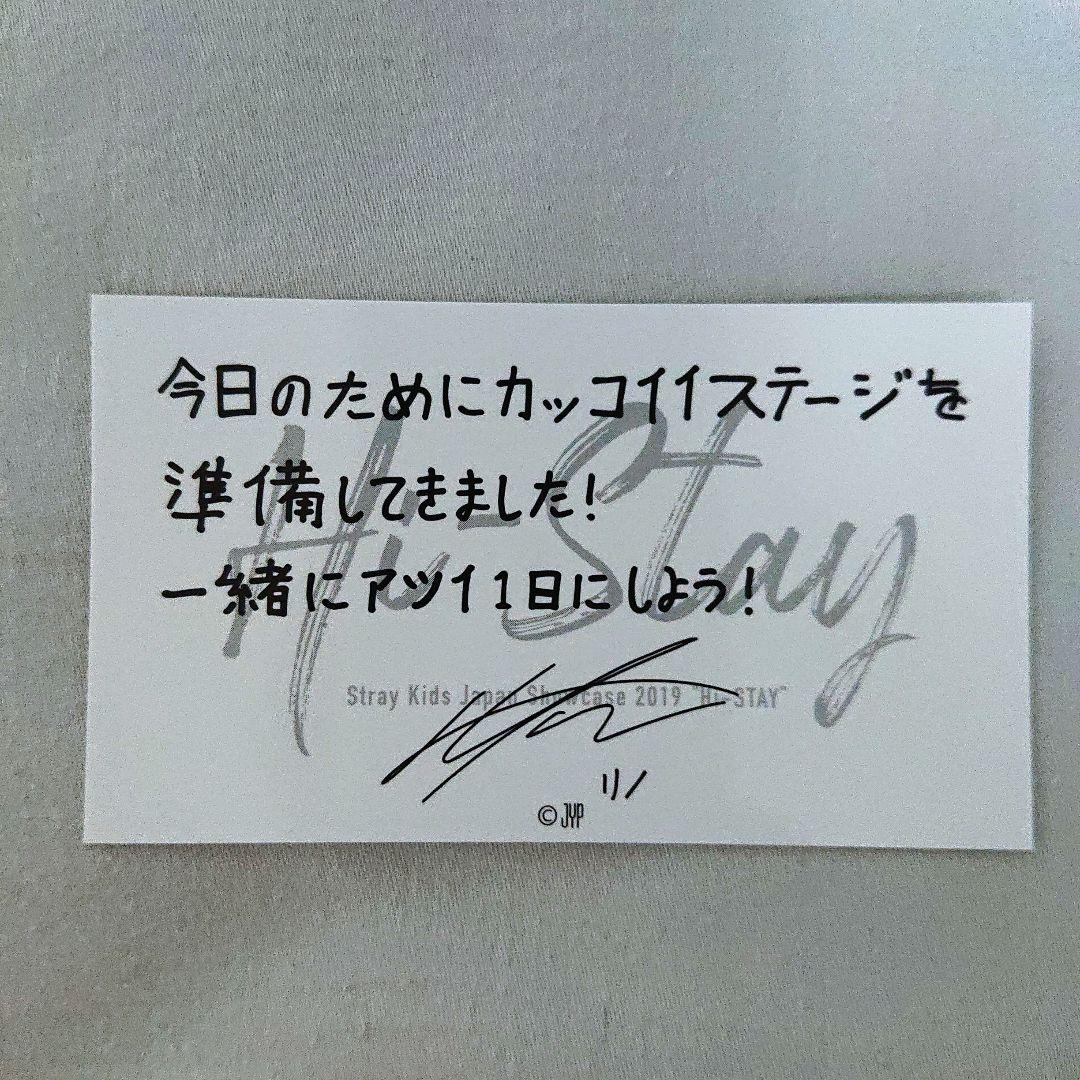 今日のためにカッコイイステージを
準備してきました!
一緒にアツイ1日にしよう!
Hi-Stay
Stray Kids Japan Showcase 2019 "Hi-STAY"
リノ
©JYP